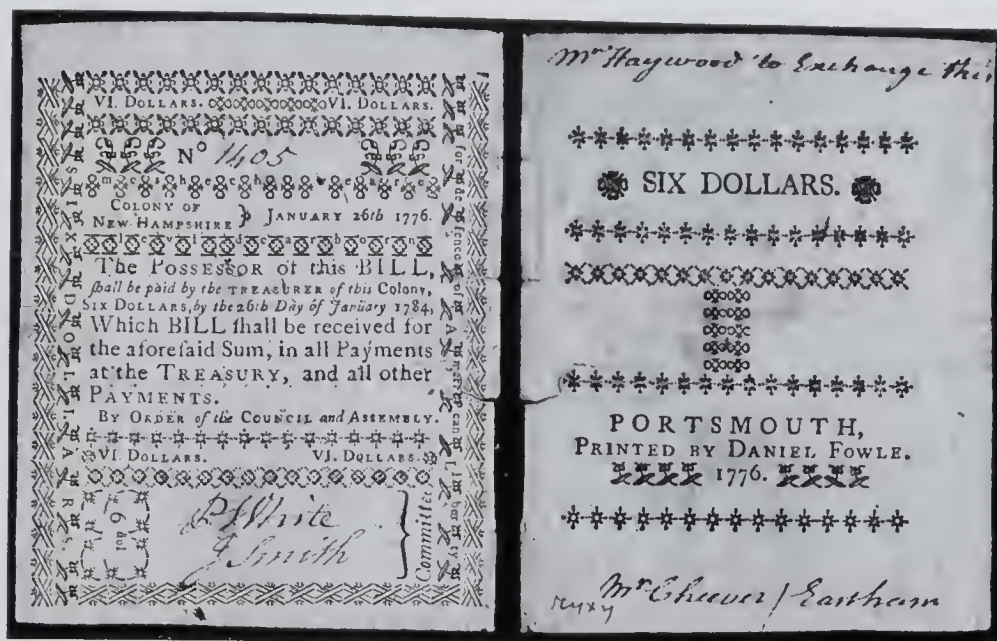 VI. DOLLARS. VI. DOLLARS.
No 1405
m e c a h e c h w e a r e
COLONY OF
NEW-HAMPSHIRE } JANUARY 26th 1776.
l e v i d e a r b o r n
The POSSESSOR of this BILL,
ſhall be paid by the TREASURER of this Colony,
SIX DOLLARS, by the 26th Day of January 1784,
Which BILL ſhall be received for
the aforeſaid Sum, in all Payments
at the TREASURY, and all other
PAYMENTS.
BY ORDER of the COUNCIL and ASSEMBLY.
VI. DOLLARS. VI. DOLLARS.
6 dol
P White
J Smith
} Committee
SIX DOLLARS.
for the defence of American Liberty
Mr Haywood to Exchange this
SIX DOLLARS.
PORTSMOUTH,
PRINTED BY DANIEL FOWLE.
1776.
Mr Cheever / Eastham